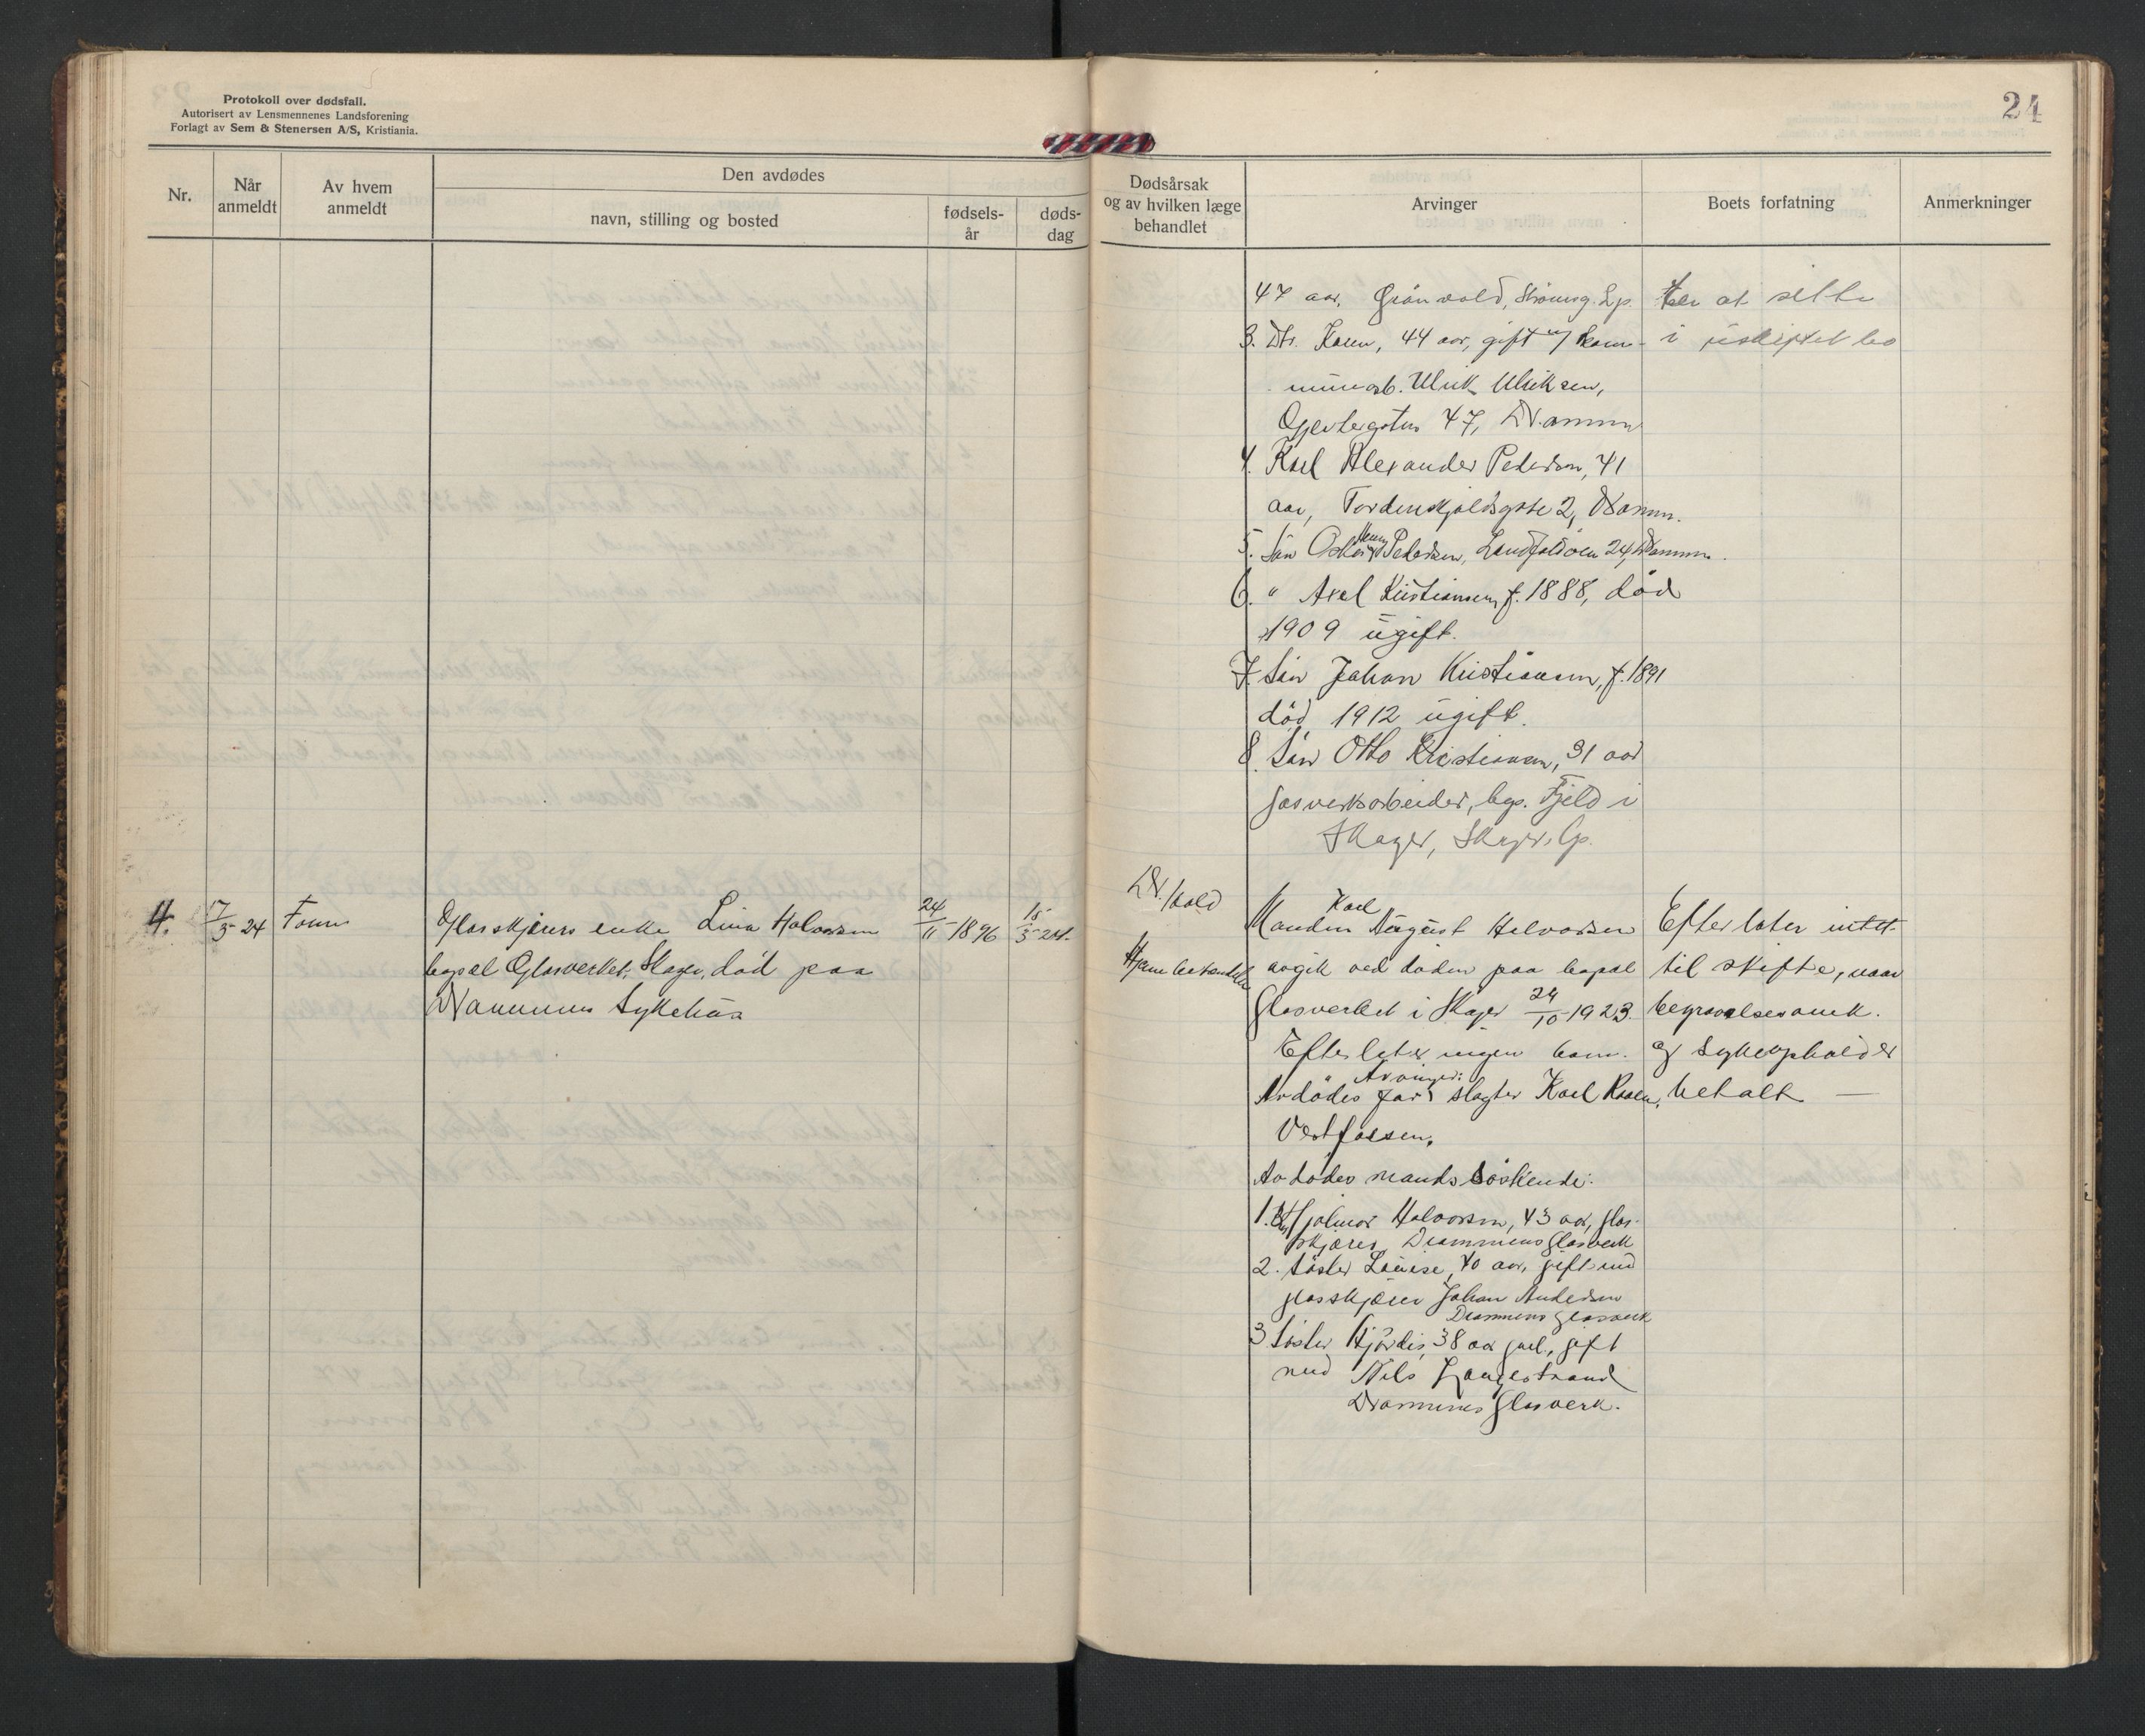 Protokoll over dødsfall.
Autorisert av Lensmennenes Landsforening
Forlagt av Sem & Stenersen A/S, Kristiania.
24
Nr.
Når anmeldt
Av hvem anmeldt
Den avdødes
navn, stilling og bosted
fødsels-år
døds-dag
Dødsårsak og av hvilken læge behandlet
Arvinger
Boets forfatning
Anmerkninger
47 aar, Grönvold, Strömsg. Lp.
3. Dtr. Karen, 44 aar, gift m/ kom-
munearb. Ulrik Ulriksen,
47, Drammen
4. Karl Alexander Pedersen, 41
aar, Tordenskjoldsgate 2, Dramm.
5. Sön Oskar Henry Pedersen, Landfaldöen 24, Drammen.
6. " Axel Kristiansen f. 1888, död
1909 ugift.
7. Sön Johan Kristiansen, f. 1891
död 1912 ugift.
8. Sön Otto Kristiansen, 31 aar
gasverksarbeider, bop. Fjeld i
Skoger, Skoger Lp.
at sitte
i uskiftet bo
4.
17/5 24
Glasskjærers enke Lina Halvorsen
bopæl Glasverket, Skoger, död paa
Drammens Sykehus
24/11 1896
15/5 24.
Dr. Hold
Hjem behandlet
Manden Karl August Halvorsen
avgik ved döden paa bopæl
Glasverket i Skoger 24/10 1923.
Efterlater ingen barn.
Arvinger:
Avdödes far slagter Karl
Vestfossen,
Avdödes mands söskende:
1. Hjalmar Halvorsen, 43 aar, glas-
skjærer, Drammens Glasverk
2. Söster Louise, 40 aar, gift med
glasskjærer Johan Andersen
Drammens Glasverk
3 Söster Hjördis, 38 aar gml., gift
med Nils Langestrand
Drammens Glasverk.
Efterlater intet
til skifte, naar
begravelsesomk.
og sykeophold er
betalt —